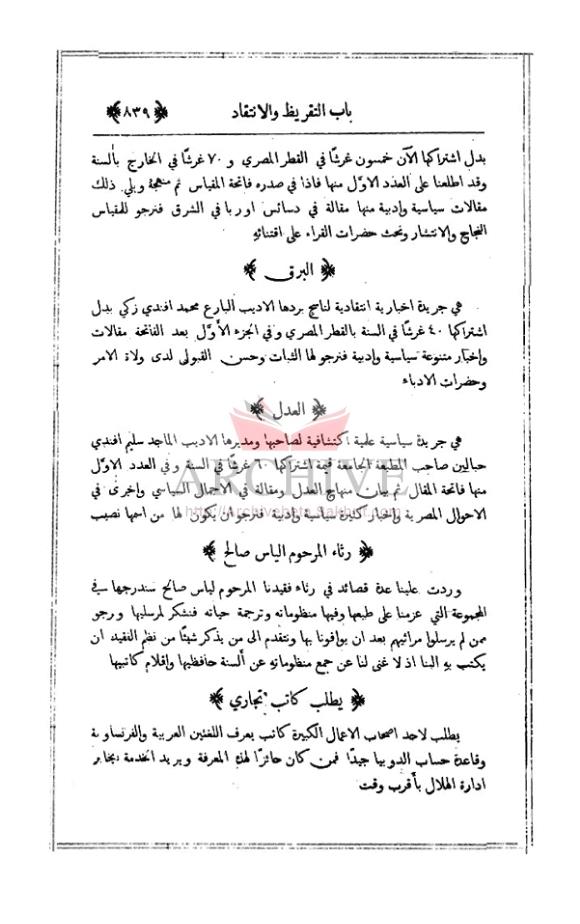 باب التقريظ والانتقاد
﴿٨٣٩﴾
بدل اشتراكها الآن خمسون غرشًا في القطر المصري و ٧٠ غرشًا في الخارج بالسنة
وقد اطلعنا على العدد الاوّل منها فاذا في صدره فاتحة المقياس ثم منهجة ويلي ذلك
مقالات سياسية وادبية منها مقالة في دسائس اوربا في الشرق فنرجو للمقياس
النجاح والانتشار ونحث حضرات القراء على اقتنائه
﴿ البرق ﴾
هي جريدة اخبارية انتقادية لناسج بردها الاديب البارع محمد افندي زكي بدل
اشتراكها ٤٠ غرشًا في السنة بالقطر المصري وفي الجزء الأوّل بعد الفاتحة مقالات
واخبار متنوعة سياسية وادبية فنرجو لها الثبات وحسن القبول لدى ولاة الامر
وحضرات الادباء
﴿ العدل ﴾
هي جريدة سياسية علمية اكتشافية لصاحبها ومديرها الاديب الماجد سليم افندي
حبالين صاحب المطبعة الجامعة قيمة اشتراكها ٦٠ غرشًا في السنة وفي العدد الاوّل
منها فاتحة المقال ثم بيان منهاج العدل ومقالة في الاجمال السياسي واخرى في
الاحوال المصرية واخبار كثيرة سياسية وادبية فنرجو ان يكون لها من اسمها نصيب
ARCHIVE
http://Archivebeta.Sakhrit.com
﴿ رثاء المرحوم الياس صالح ﴾
وردت علينا عدة قصائد في رثاء فقيدنا المرحوم لياس صالح سندرجها في
المجموعة التي عزمنا على طبعها وفيها منظوماته وترجمة حياته فنشكر لمرسليها ونرجو
ممن لم يرسلوا مراثيهم بعد ان يوافونا بها ونتقدم الى من يذكر شيئًا من نظم الفقيد ان
يكتب به الينا اذ لا غنى لنا عن جمع منظوماته عن ألسنة حافظيها واقلام كاتبيها
﴿ يطلب كاتب تجاري ﴾
يطلب لاحد اصحاب الاعمال الكبيرة كاتب يعرف اللغتين العربية والفرنساوية
وقاعدة حساب الدوبيا جيدًا فمن كان حائزًا لهذه المعرفة ويريد الخدمة فيخابر
ادارة الهلال بأقرب وقت